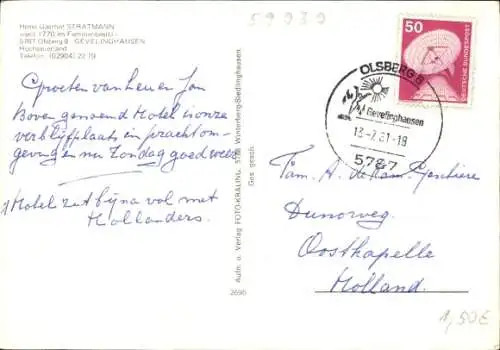 59939
Hotel Gasthof STRATMANN
seit 1770 im Familienbesitz
5787 Olsberg 8 GEVELINGHAUSEN
Hochsauerland
Telefon: (02904) 22 79
Groeten van heuer Jan
Boven genoemd Hotel is onze
verblijfplaats in pracht om-
geving en nu Zondag goed weer
Hotel zit bijna vol met
Hollanders.
Aufn. u. Verlag FOTO KRÄLING, 5788 Winterberg-Siedlinghausen
Ges. gesch.
2690
50
DEUTSCHE BUNDESPOST
OLSBERG 8
Gevelinghausen
13-7.81-18
5787
Fam. A. de Kam-Gentiere
Dunoweg.
Oostkapelle
Holland.
1,50€